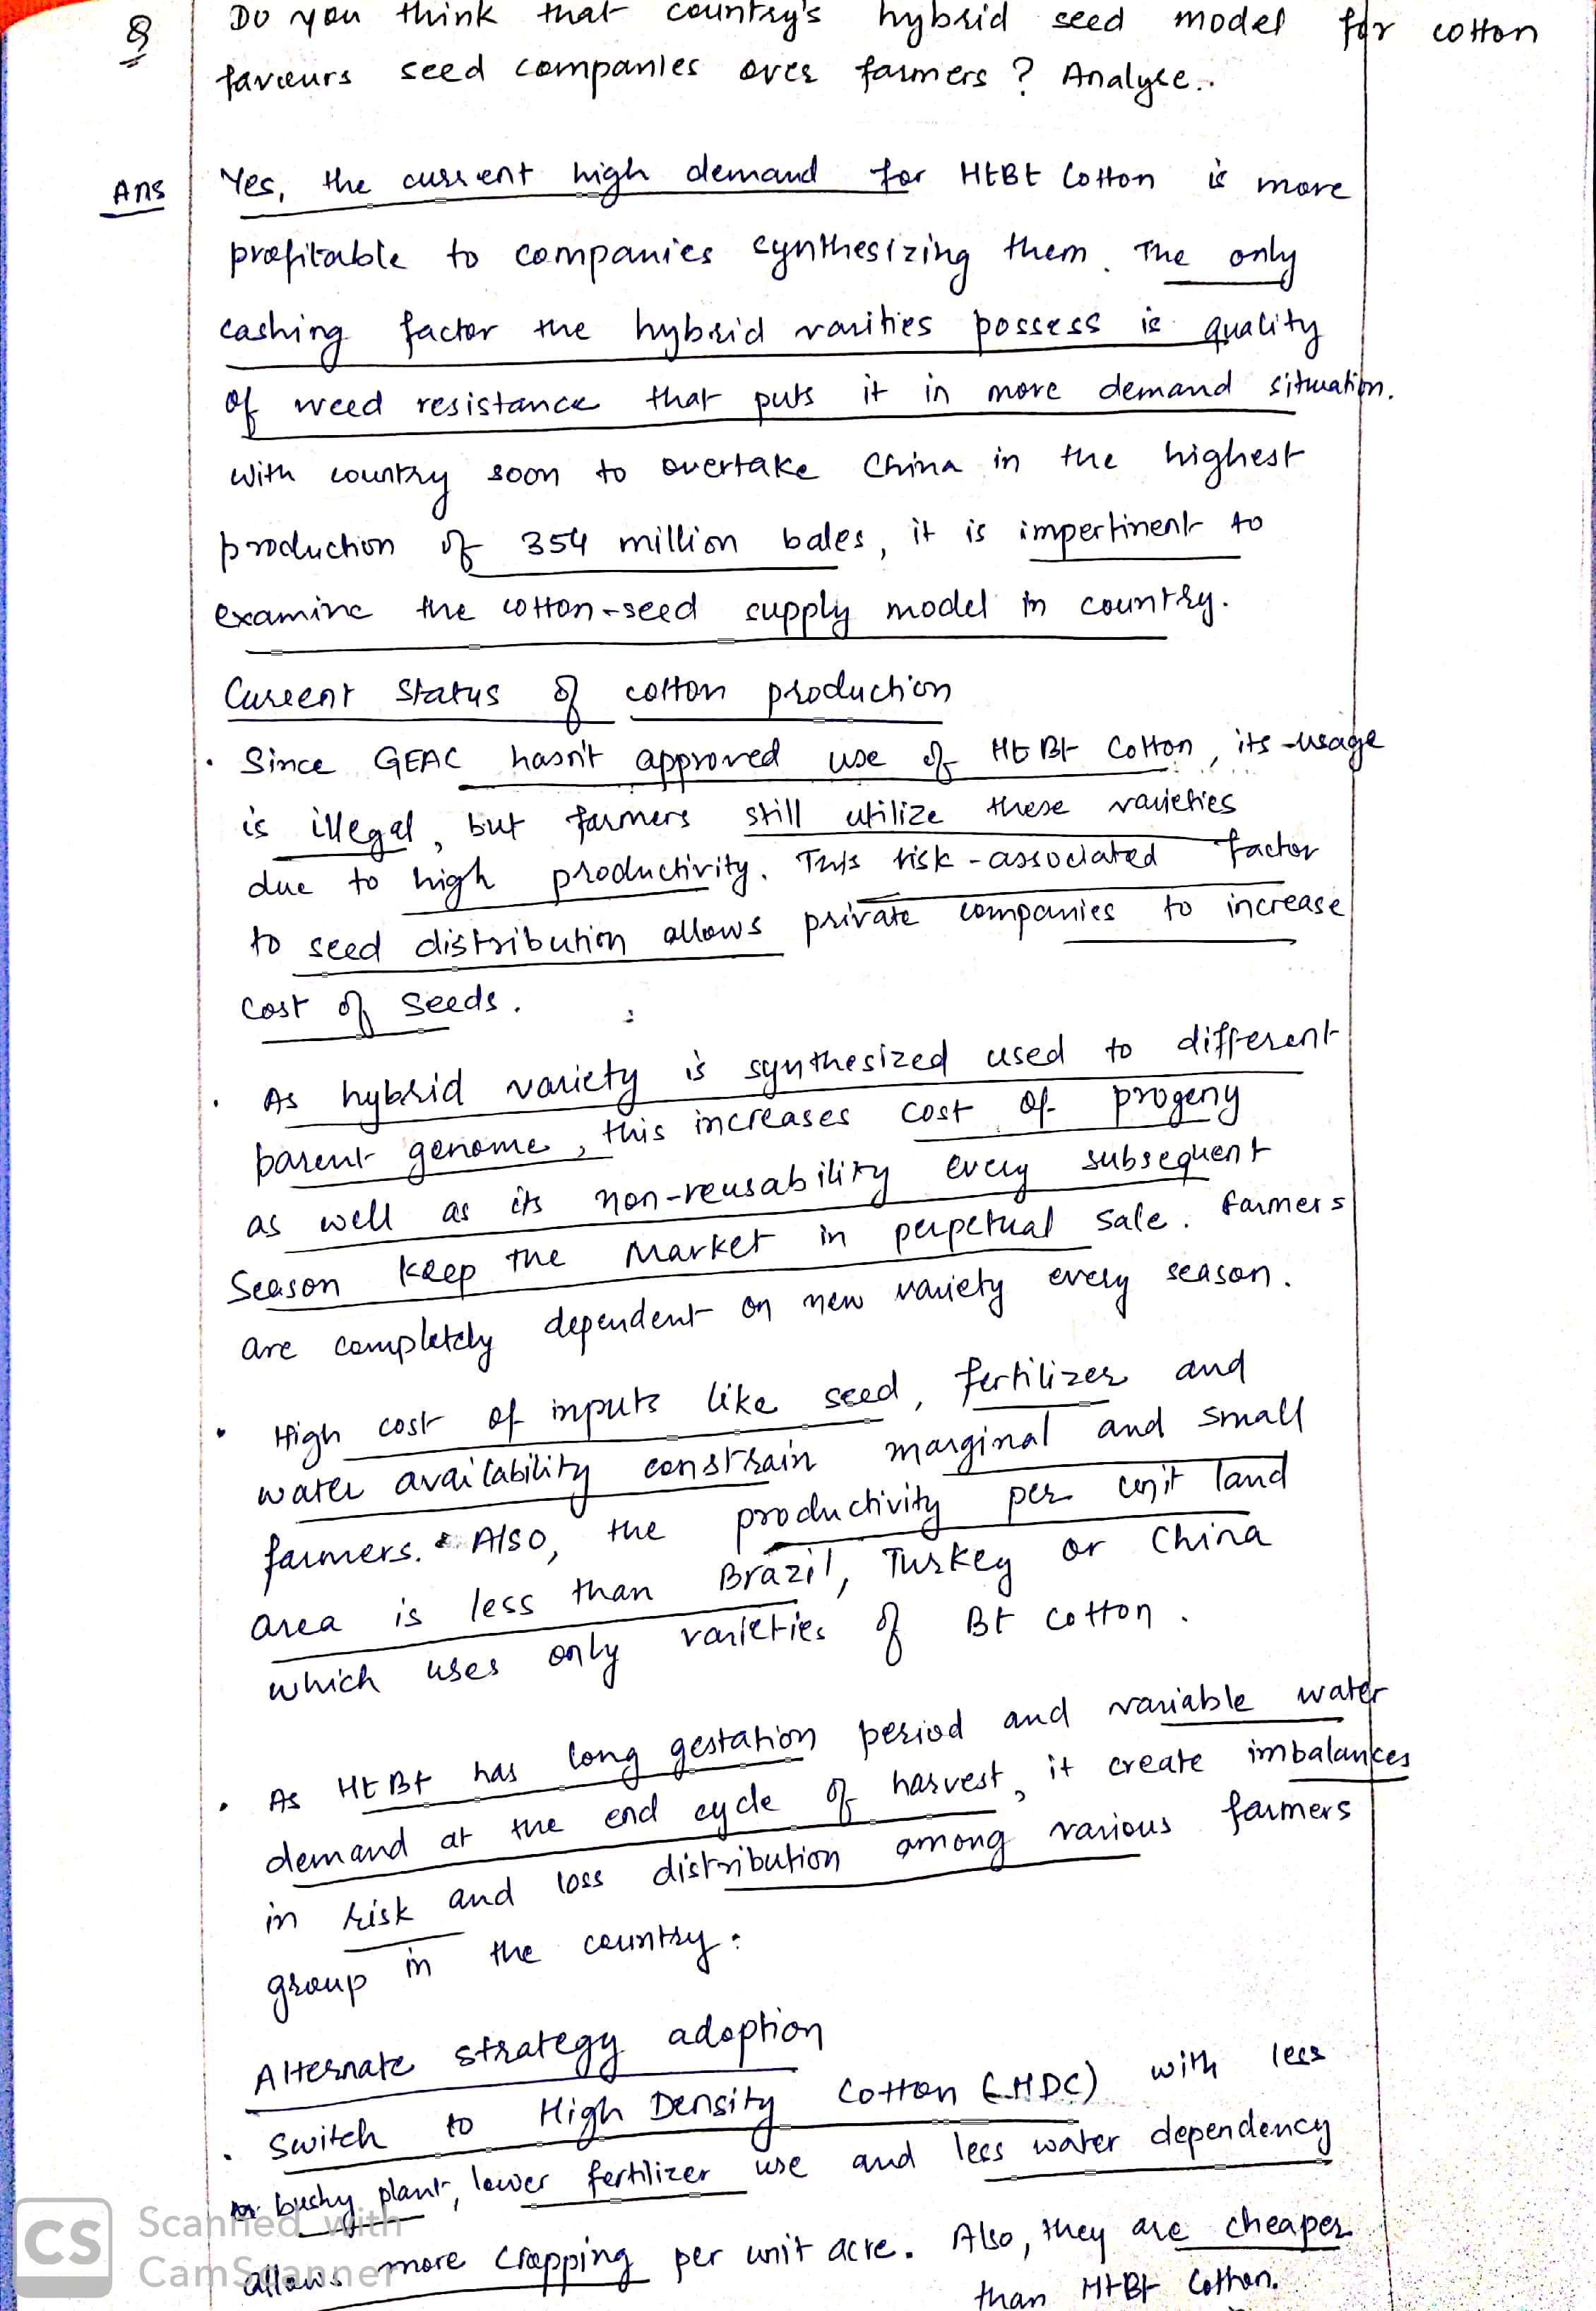 Q Do you think that country's hybrid seed model for cotton
favours seed companies over farmers? Analyse.
Ans Yes, the current high demand for HtBt Cotton is more
profitable to companies synthesizing them. The only
cashing factor the hybrid varities possess is quality
of weed resistance that puts it in more demand situation.
With country soon to overtake China in the highest
production of 354 million bales, it is impertinent to
examine the cotton-seed supply model in country.
Current Status of cotton production
• Since GEAC hasn't approved use of Ht Bt Cotton, its usage
is illegal, but farmers still utilize these varieties
due to high productivity. This risk-associated factor
to seed distribution allows private companies to increase
cost of seeds.
• As hybrid variety is synthesized used to different
parent genome, this increases cost of progeny
as well as its non-reusability every subsequent
Season keep the Market in perpetual sale. farmers
are completely dependent on new variety every season.
• High cost of inputs like seed, fertilizer and
water availability constrain marginal and small
farmers. Also, the productivity per unit land
area is less than Brazil, Turkey or China
which uses only varieties of Bt cotton.
• As Ht Bt has long gestation period and variable water
demand at the end cycle of harvest, it create imbalances
in risk and loss distribution among various farmers
group in the country.
Alternate strategy adoption
• Switch to High Density Cotton (HDC) with less
bushy plant, lower fertilizer use and less water dependency
allows more cropping per unit acre. Also, they are cheaper
than HtBt Cotton.
CS Scanned with
CamScanner